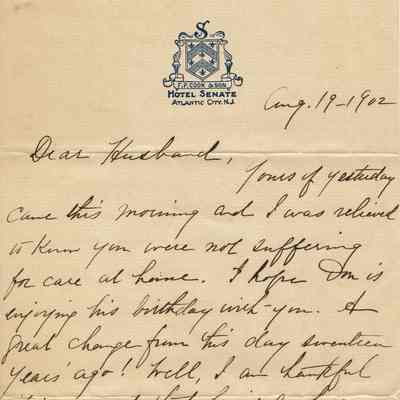 S
F. P. COOK & SON
HOTEL SENATE
ATLANTIC CITY. N.J.
Aug. 19-1902
Dear Husband,
Yours of yesterday
came this morning and I was relieved
to know you were not suffering
for care at home. I hope Don is
enjoying his birthday with-you. A
great change from this day seventeen
years ago! Well, I am thankful